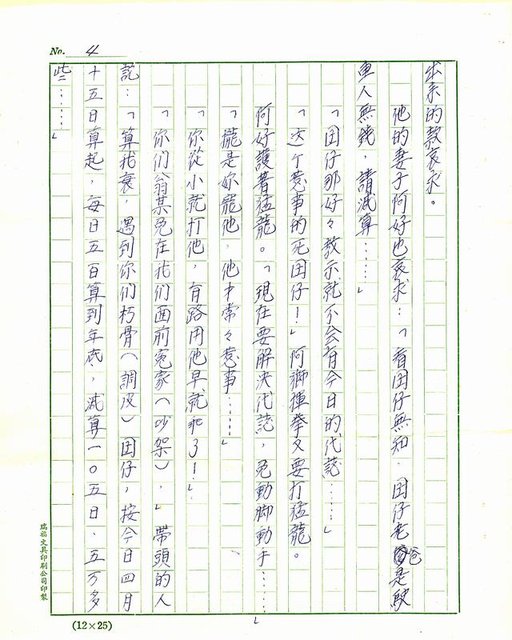 No. 4
出来的款哀求。
他的妻子何好也哀求：「看囝仔無知，囝仔老爸是駛
魚人無錢，請減算……」
「囝仔那好々教示就不会有今日的代誌……」
「这个惹事的死囝仔！」何獅揮拳又要打猛龍。
何好護著猛龍。「現在要解決代誌，免動脚動手……」
「攏是妳寵他，他才常々惹事……」
「你從小就打他，有路用他早就乖了！」
「你们翁某免在我们面前冤家（吵架）。」帶頭的人
說：「算我衰，遇到你们朽骨（調皮）囝仔，按今日四月
十五日算起，每日五百算到年底，減算一０五日，五万多
些……」
(12×25)
瑞裕文具印刷公司印製